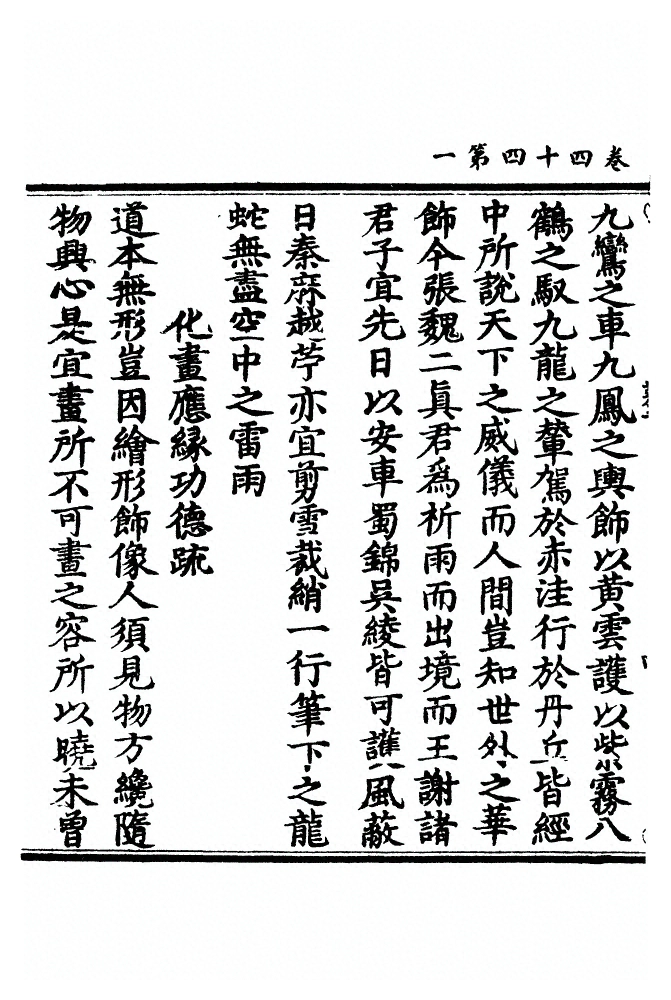 卷四十四第一
九鸞之車九鳳之輿飾以黃雲護以紫霧八
鶴之馭九龍之輦駕於赤洼行於丹丘皆經
中所說天下之威儀而人間豈知世外之華
飾今張魏二眞君爲祈雨而出境而王謝諸
君子宜先日以安車蜀錦吳綾皆可護風蔽
日秦麻越苧亦宜剪雪裁綃一行筆下之龍
蛇無盡空中之雷雨
化畫應緣功德疏
道本無形豈因繪形飾像人須見物方纔隨
物興心是宜畫所不可畫之容所以曉未曾